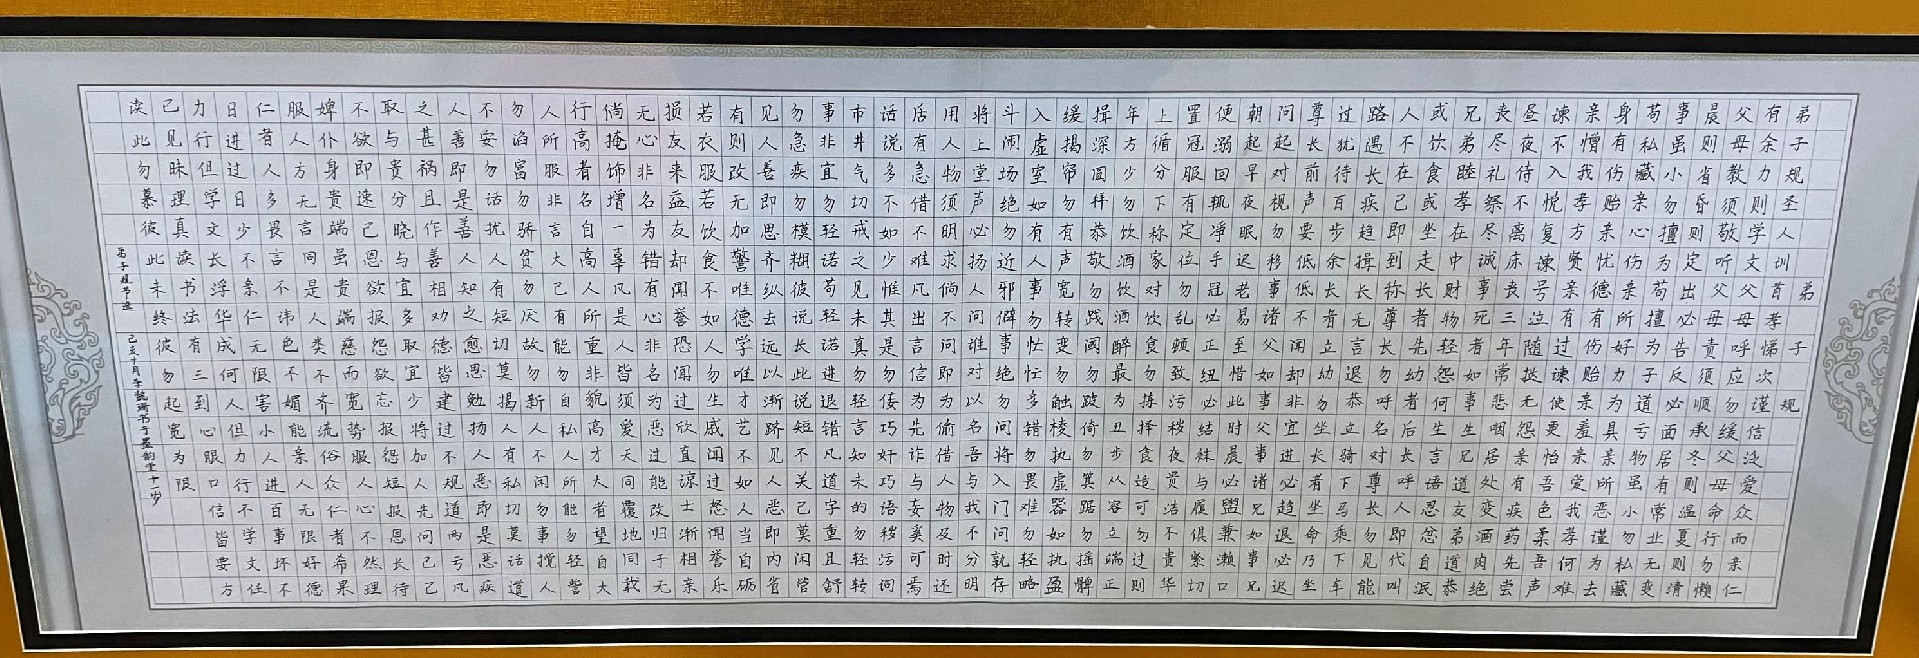 弟子规
弟子规圣人训首孝悌次谨信泛爱众而亲仁
有余力则学文父母呼应勿缓父母命行勿懒
父母教须敬听父母责须顺承冬则温夏则清
晨则省昏则定出必告反必面居有常业无变
事虽小勿擅为苟擅为子道亏物虽小勿私藏
苟私藏亲心伤亲所好力为具亲所恶谨为去
身有伤贻亲忧德有伤贻亲羞亲爱我孝何难
亲憎我孝方贤亲有过谏使更怡吾色柔吾声
谏不入悦复谏号泣随挞无怨亲有疾药先尝
昼夜侍不离床丧三年常悲咽居处变酒肉绝
丧尽礼祭尽诚事死者如事生兄道友弟道恭
兄弟睦孝在中财物轻怨何生言语忍忿自泯
或饮食或坐走长者先幼者后长呼人即代叫
人不在己即到称尊长勿呼名对尊长勿见能
路遇长疾趋揖长无言退恭立骑下马乘下车
过犹待百步余长者立幼勿坐长者坐命乃坐
尊长前声要低低不闻却非宜进必趋退必迟
问起对视勿移事诸父如事父事诸兄如事兄
朝起早夜眠迟老易至惜此时晨必盥兼漱口
便溺回辄净手冠必正纽必结袜与履俱紧切
置冠服有定位勿乱顿致污秽衣贵洁不贵华
上循分下称家对饮食勿拣择食适可勿过则
年方少勿饮酒饮酒醉最为丑步从容立端正
揖深圆拜恭敬勿践阈勿跛倚勿箕踞勿摇髀
缓揭帘勿有声宽转弯勿触棱执虚器如执盈
入虚室如有人事勿忙忙多错勿畏难勿轻略
斗闹场绝勿近邪僻事绝勿问将入门问孰存
将上堂声必扬人问谁对以名吾与我不分明
用人物须明求倘不问即为偷借人物及时还
后有急借不难凡出言信为先诈与妄奚可焉
话说多不如少惟其是勿佞巧奸巧语秽污词
市井气切戒之见未真勿轻言知未的勿轻传
事非宜勿轻诺苟轻诺进退错凡道字重且舒
勿急疾勿模糊彼说长此说短不关己莫闲管
见人善即思齐纵去远以渐跻见人恶即内省
有则改无加警唯德学唯才艺不如人当自砺
若衣服若饮食不如人勿生戚闻过怒闻誉乐
损友来益友却闻誉恐闻过欣直谅士渐相亲
无心非名为错有心非名为恶过能改归于无
倘掩饰增一辜凡是人皆须爱天同覆地同载
行高者名自高人所重非貌高才大者望自大
人所服非言大己有能勿自私人所能勿轻訾
勿谄富勿骄贫勿厌故勿新人不闲勿事搅人
不安勿话扰人有短切莫揭人有私切莫说道
人善即是善人知之愈思勉扬人恶即是恶疾
之甚祸且作善相劝德皆建过不规道两亏凡
取与贵分晓与宜多取宜少将加人先问己己
不欲即速已恩欲报怨欲忘报怨短报恩长待
婢仆身贵端虽贵端慈而宽势服人心不然理
服人方无言同是人类不齐流俗众仁者希果
仁者人多畏言不讳色不媚能亲仁无限好德
日进过日少不亲仁无限害小人进百事坏不
力行但学文长浮华成何人但力行不学文任
己见昧理真读书法有三到心眼口信皆要方
读此勿慕彼此未终彼勿起宽为限
弟子规节选
己亥十月李 琦书于墨韵堂十一岁